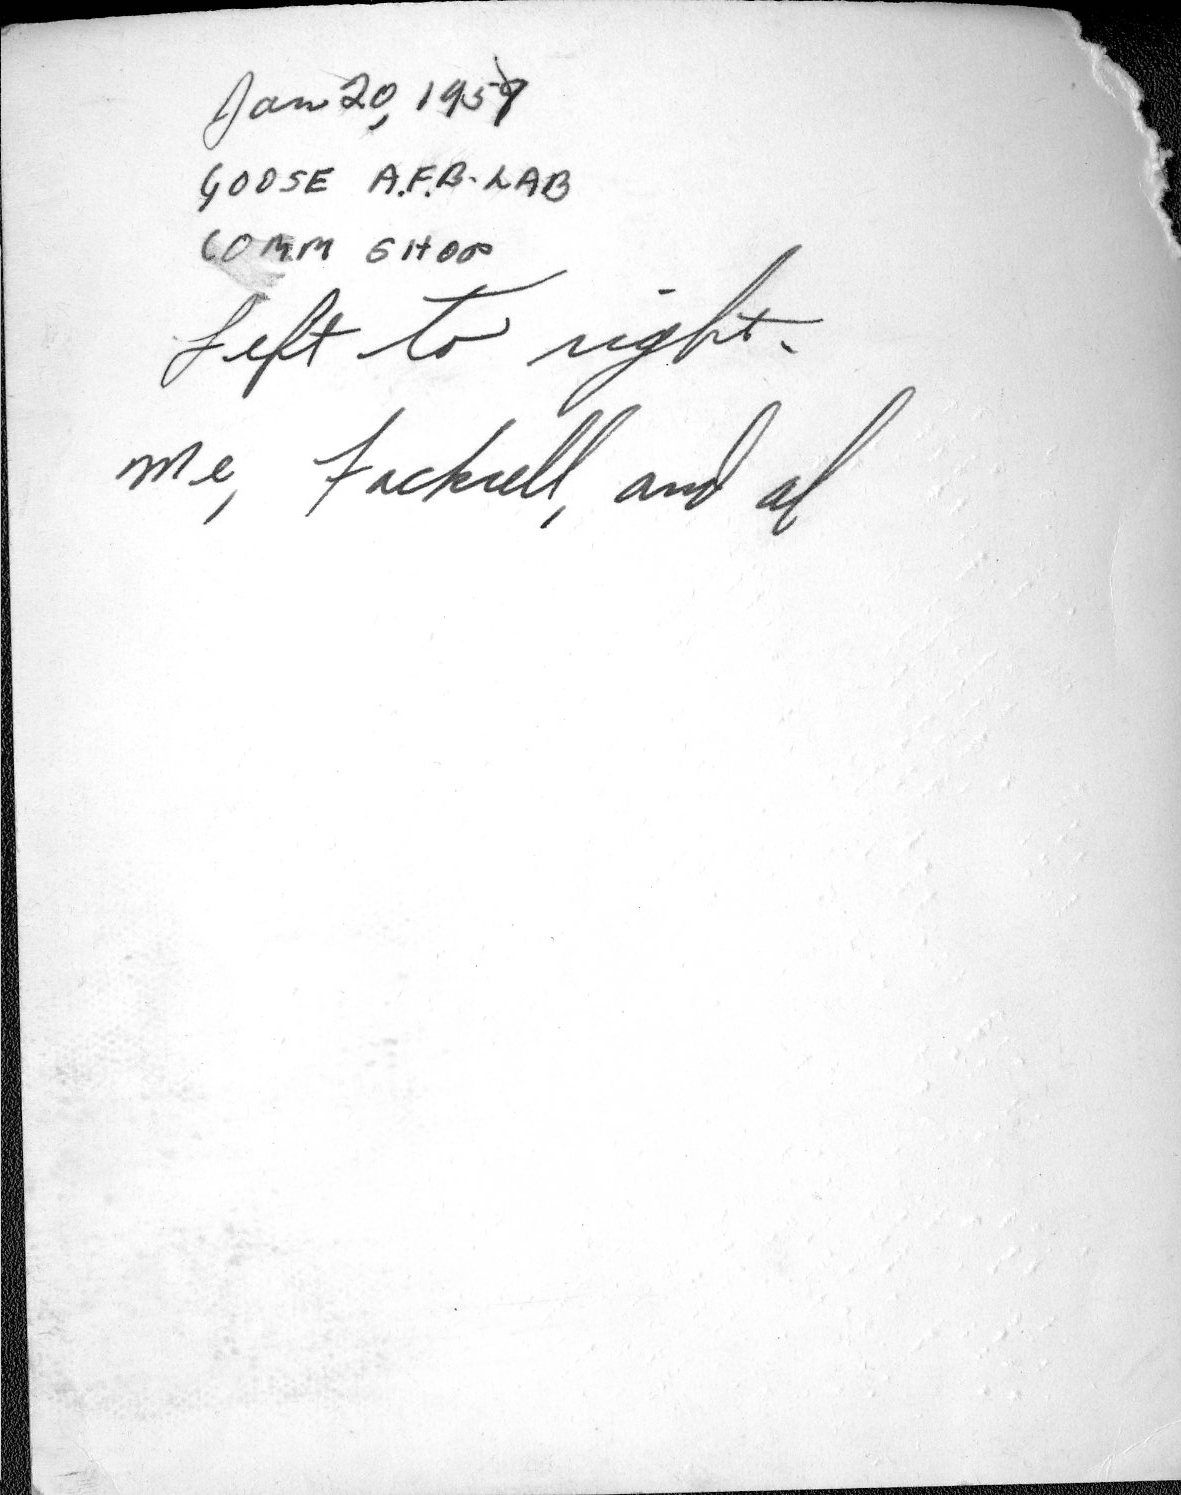 Jan 20, 1959
GOOSE A.F.B. LAB
COMM SHOP
Left to right.
Me, Fackrell, and Al